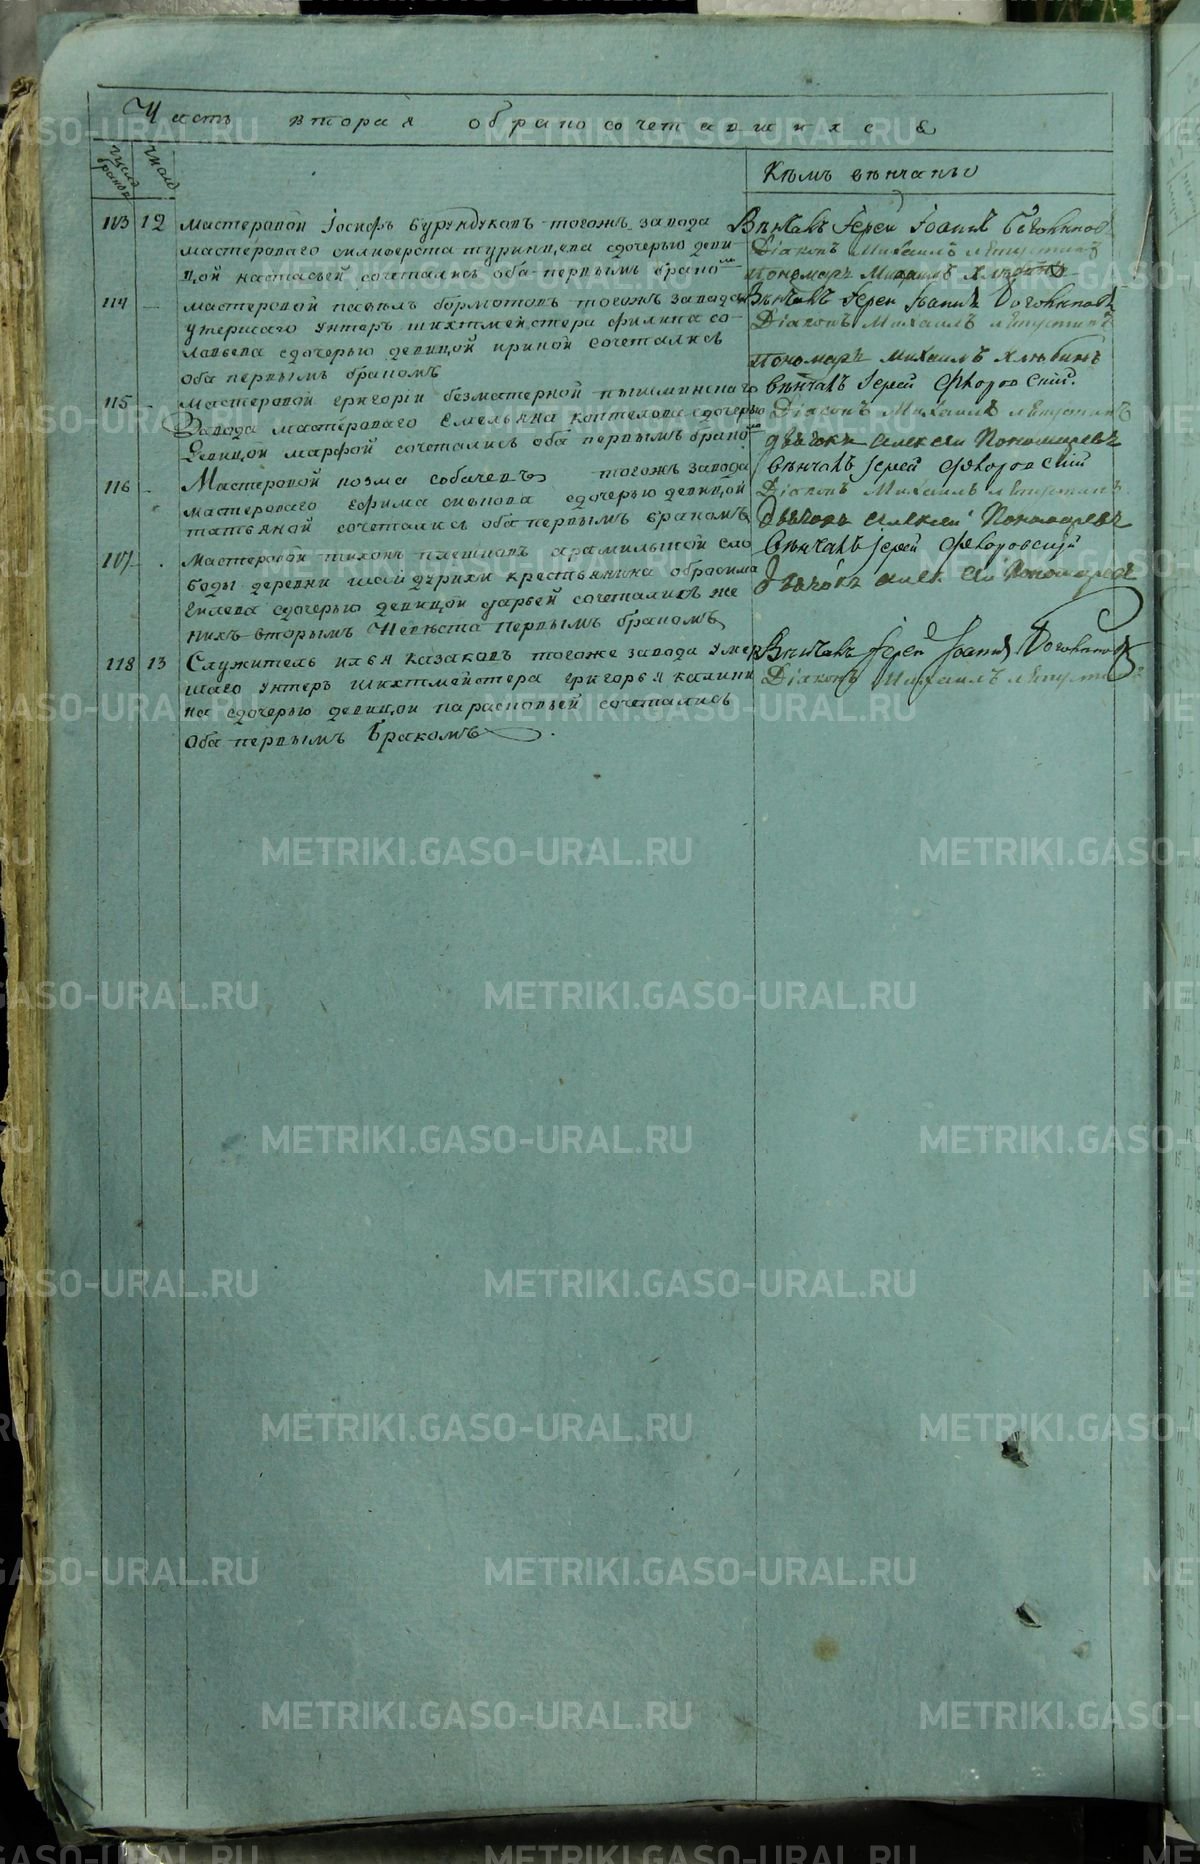 Часть вторая о браносочетавшихся
Щетъ браковъ
Число
Кѣмъ вѣнчаны
113 12 мастеровой Іосифъ бурундуковъ тогожъ завода
мастероваго силиверста туринцева сдочерью деви-
цой настасьей сочетались оба первымъ бракомъ
Вѣнчалъ Іерей Іоаннъ
Діаконъ Михаилъ
Пономарь Михаилъ Хлызбинъ
114 мастеровой павелъ бормотовъ тогожъ завода
умершаго Унтеръ шихтмейстера филипа со-
ловьева сдочерью девицой ириной сочетались
оба первымъ бракомъ
Вѣнчалъ Іерей Іоаннъ
Діаконъ Михаилъ
Пономарь Михаилъ Хлызбинъ
115 мастеровой григорій безматерной пышминскаго
Завода мастероваго Емельяна коптелова сдочерью
Девицой марфой сочетались оба первымъ бракомъ
вѣнчалъ Іерей Флоровскій.
Діаконъ Михаилъ
дьячокъ алексей Пономаревъ
116 Мастеровой козма собачевъ тогожъ завода
мастероваго Ефима сконова сдочерью девицой
татьяной сочетались оба первымъ бракомъ
вѣнчалъ Іерей Флоровскій
Діаконъ Михаилъ
Дьячокъ алексей Пономаревъ
117 мастеровой тихонъ плешковъ арамильской сло
боды деревни шайдурихи крестьянина
сдочерью девицой дарьей сочетались же
нихъ вторымъ Невѣста первымъ бракомъ
вѣнчалъ Іерей Флоровскій
Дьячокъ алексей Пономаревъ
118 13 Служитель илья казаковъ тогоже завода умер
шаго унтеръ шихтмейстера григорья калини
на сдочерью девицой парасковьей сочетались
Оба первымъ бракомъ.
Вѣнчалъ Іерей Іоаннъ
Діаконъ Михаилъ
METRIKI.GASO-URAL.RU